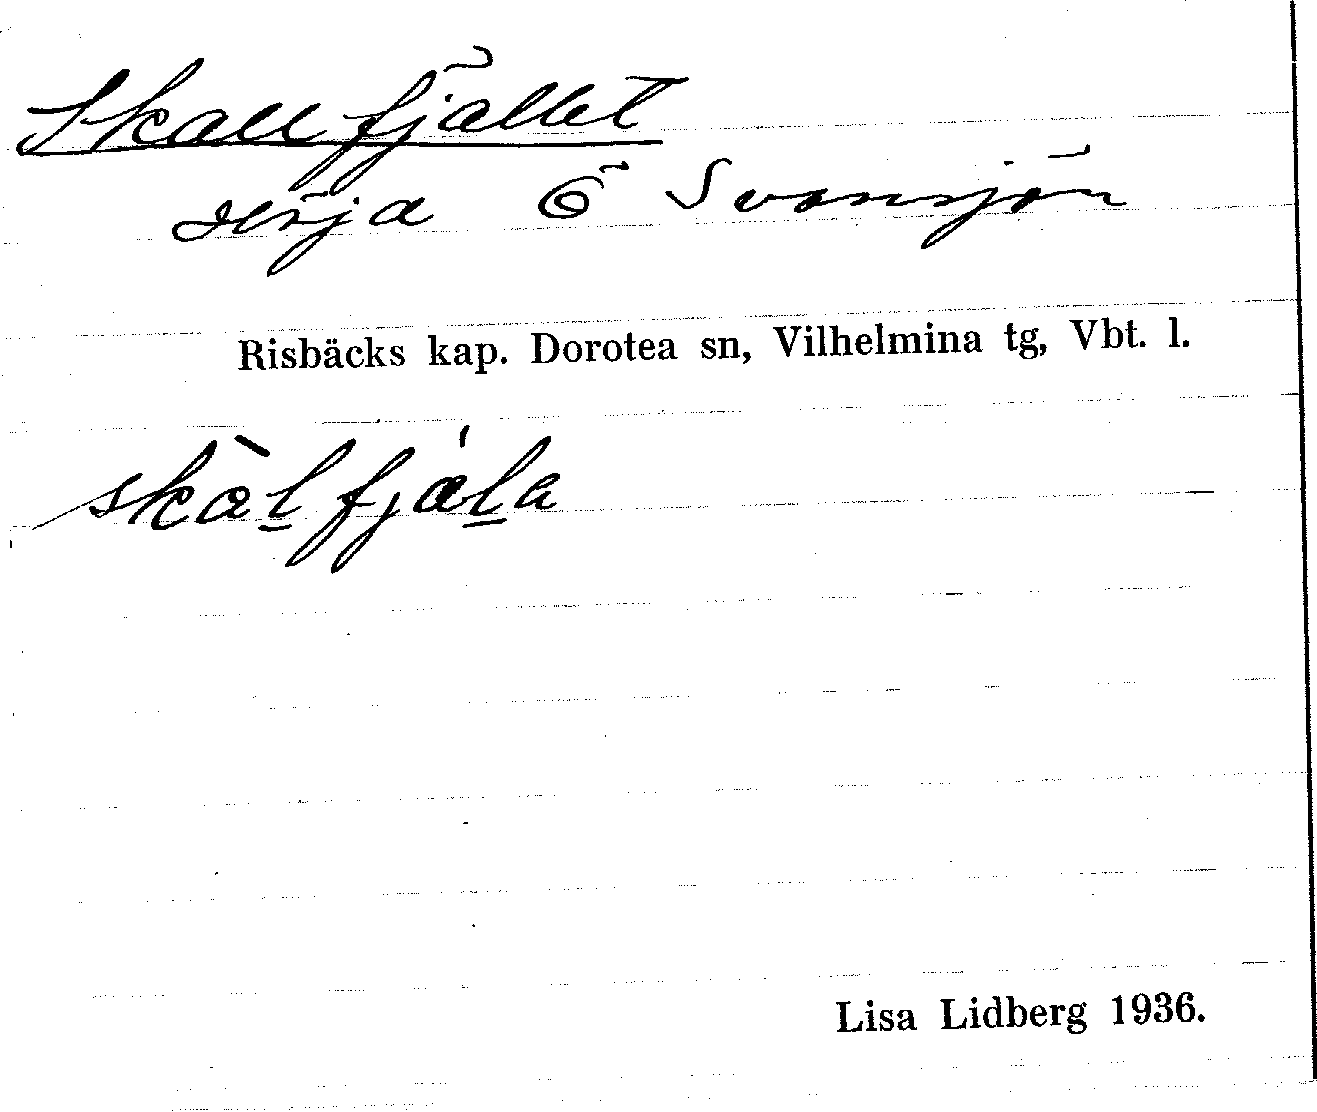 Skallfjället
höjd Ö Svansjön
Risbäcks kap. Dorotea sn, Vilhelmina tg, Vbt. l.
skàlfjǽla
Lisa Lidberg 1936.